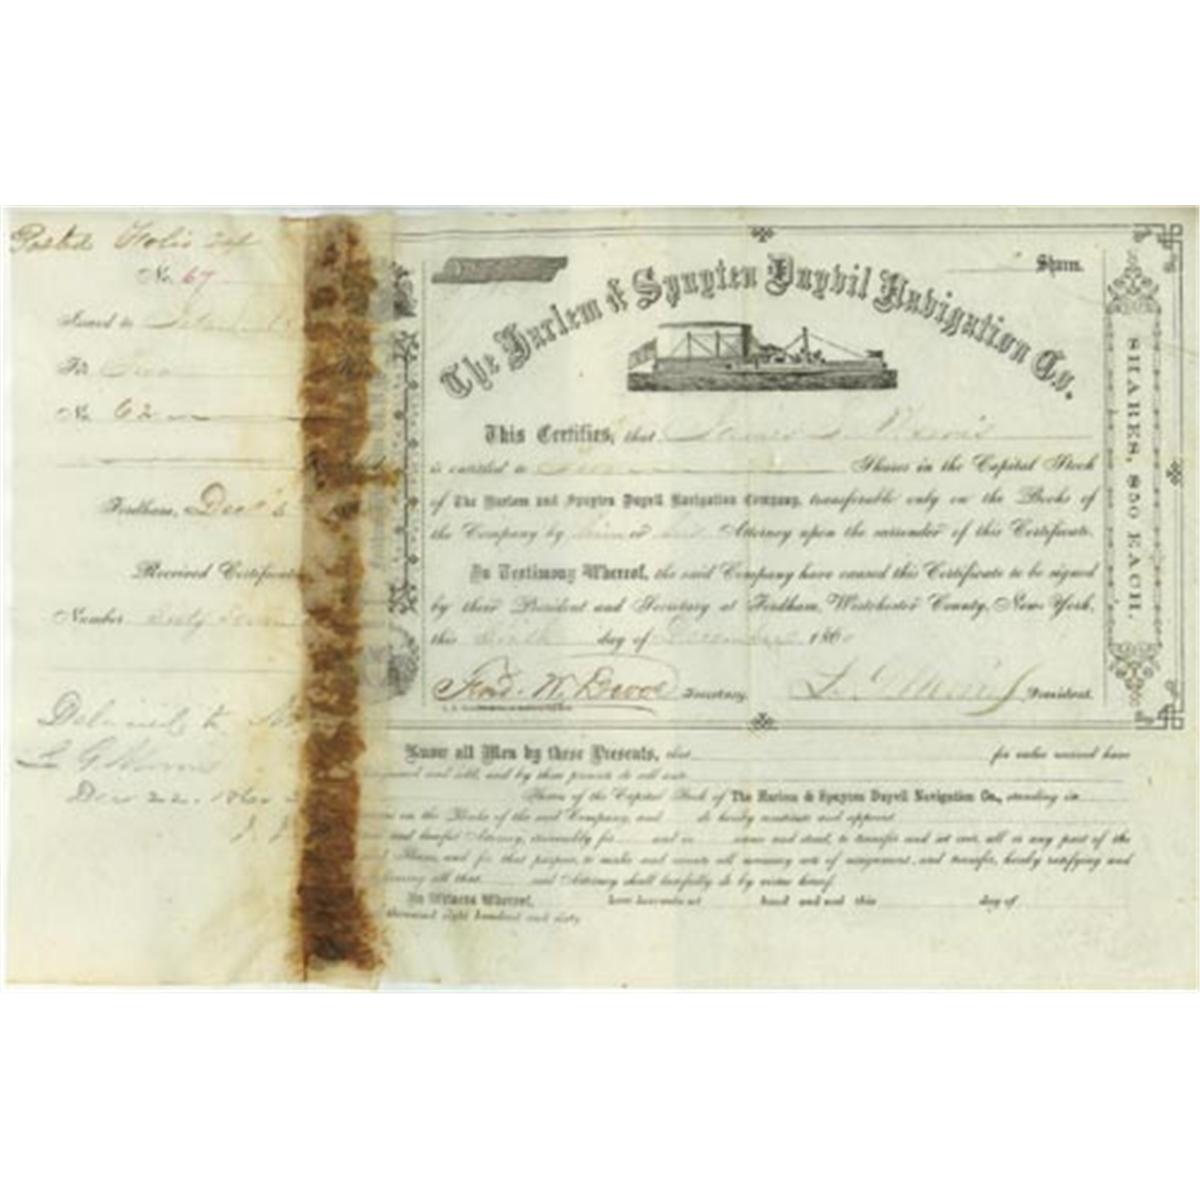 Posted Folio
No. 67
Issued to
For
No. 62
Fordham, Dec 6
Received Certificate
Number Sixty Seven
Delivered to
L G Morris
Dec 22. 1860
Shares.
The Harlem & Spuyten Duyvil Navigation Co.
SHARES, $50 EACH.
This Certifies, that Morris
is entitled to Shares in the Capital Stock
of The Harlem and Spuyten Duyvil Navigation Company, transferable only on the Books of
the Company by him or his Attorney upon the surrender of this Certificate.
In Testimony Whereof, the said Company have caused this Certificate to be signed
by their President and Secretary at Fordham, Westchester County, New York,
this Sixth day of December 1860
Fred. W. Devoe Secretary. L. G. Morris President.
Know all Men by these Presents, that for value received have
and sold, and by these presents do sell unto
Shares of the Capital Stock of The Harlem & Spuyten Duyvil Navigation Co., standing in
on the Books of the said Company, and do hereby constitute and appoint
and lawful Attorney, irrevocably for and in name and stead, to transfer and set over, all or any part of the
Shares, and for that purpose, to make and execute all necessary acts of assignment, and transfer, hereby ratifying and
all that said Attorney shall lawfully do by virtue hereof.
In Witness Whereof, have hereunto set hand and seal this day of
thousand eight hundred and sixty